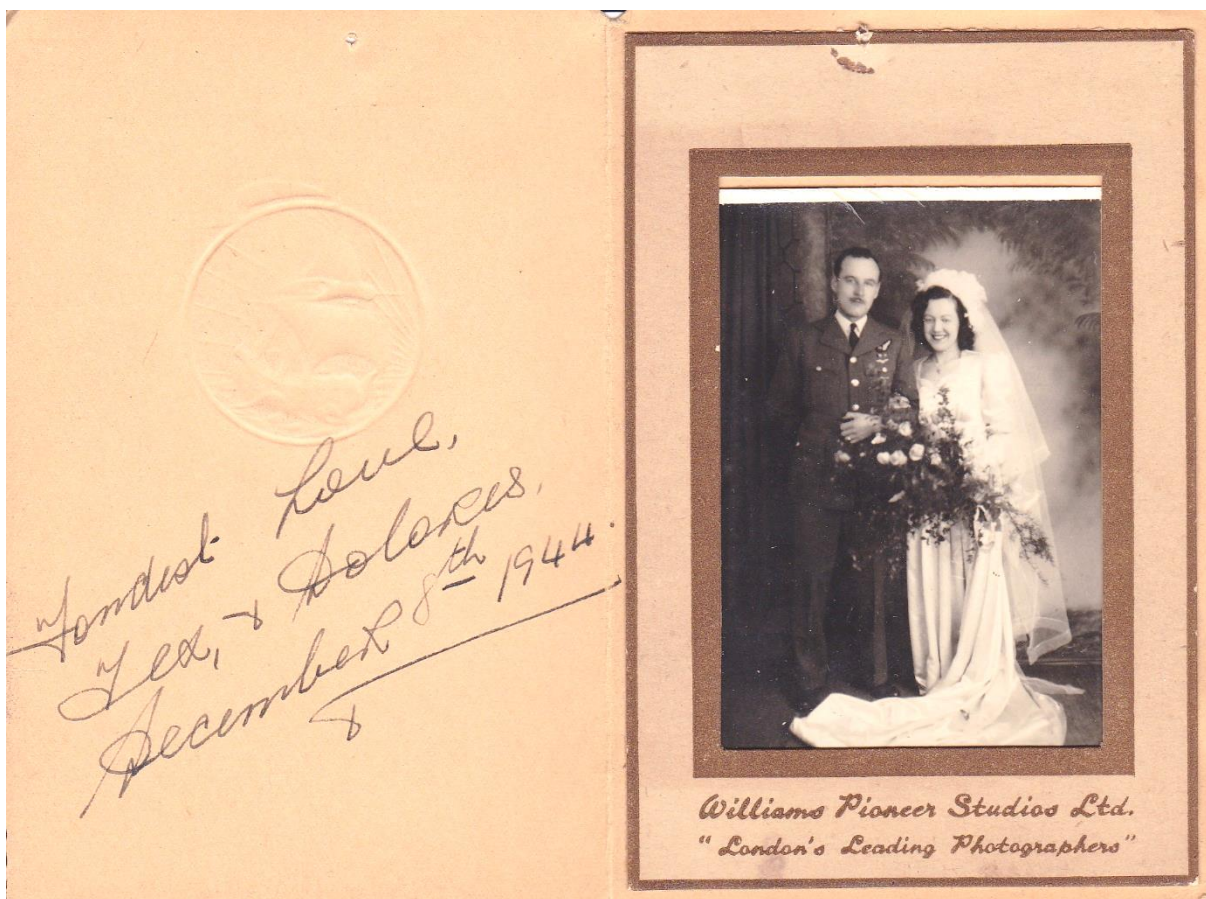 Fondest Love,
Tex, & Dolores,
December 8th 1944.
Williams Pioneer Studios Ltd.
"London's Leading Photographers"